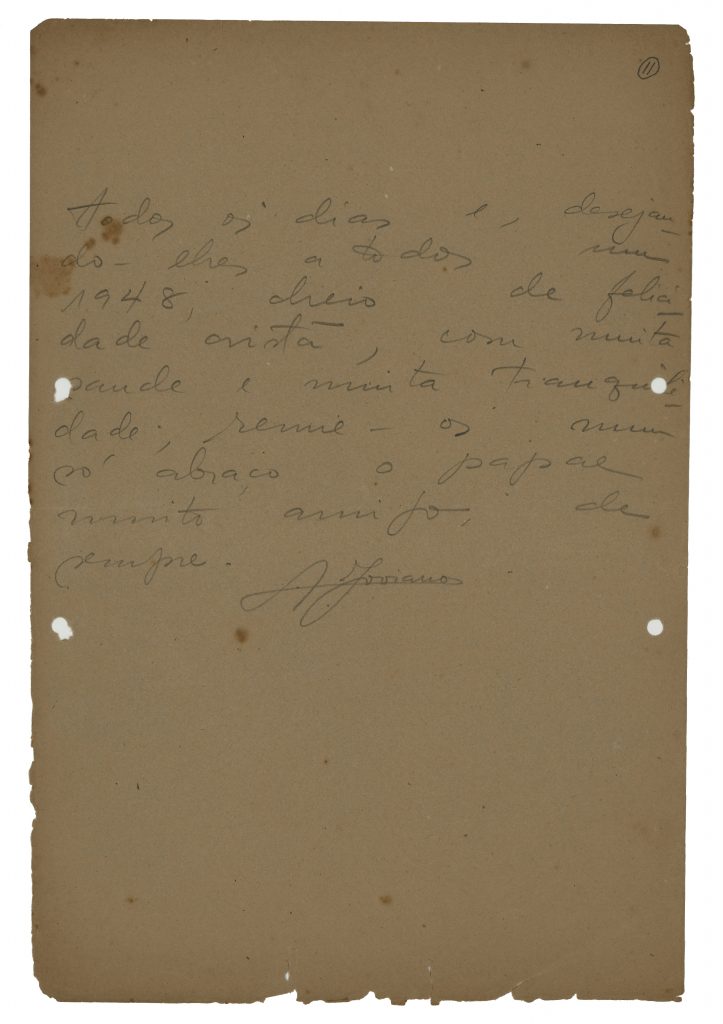 11
todos os dias e, desejan-
do-lhes a todos um
1948, cheio de felici-
dade cristã, com muita
saude e muita tranquili-
dade, reune-os num
só abraço o papae
muito amigo, de
sempre.
A. Joviano